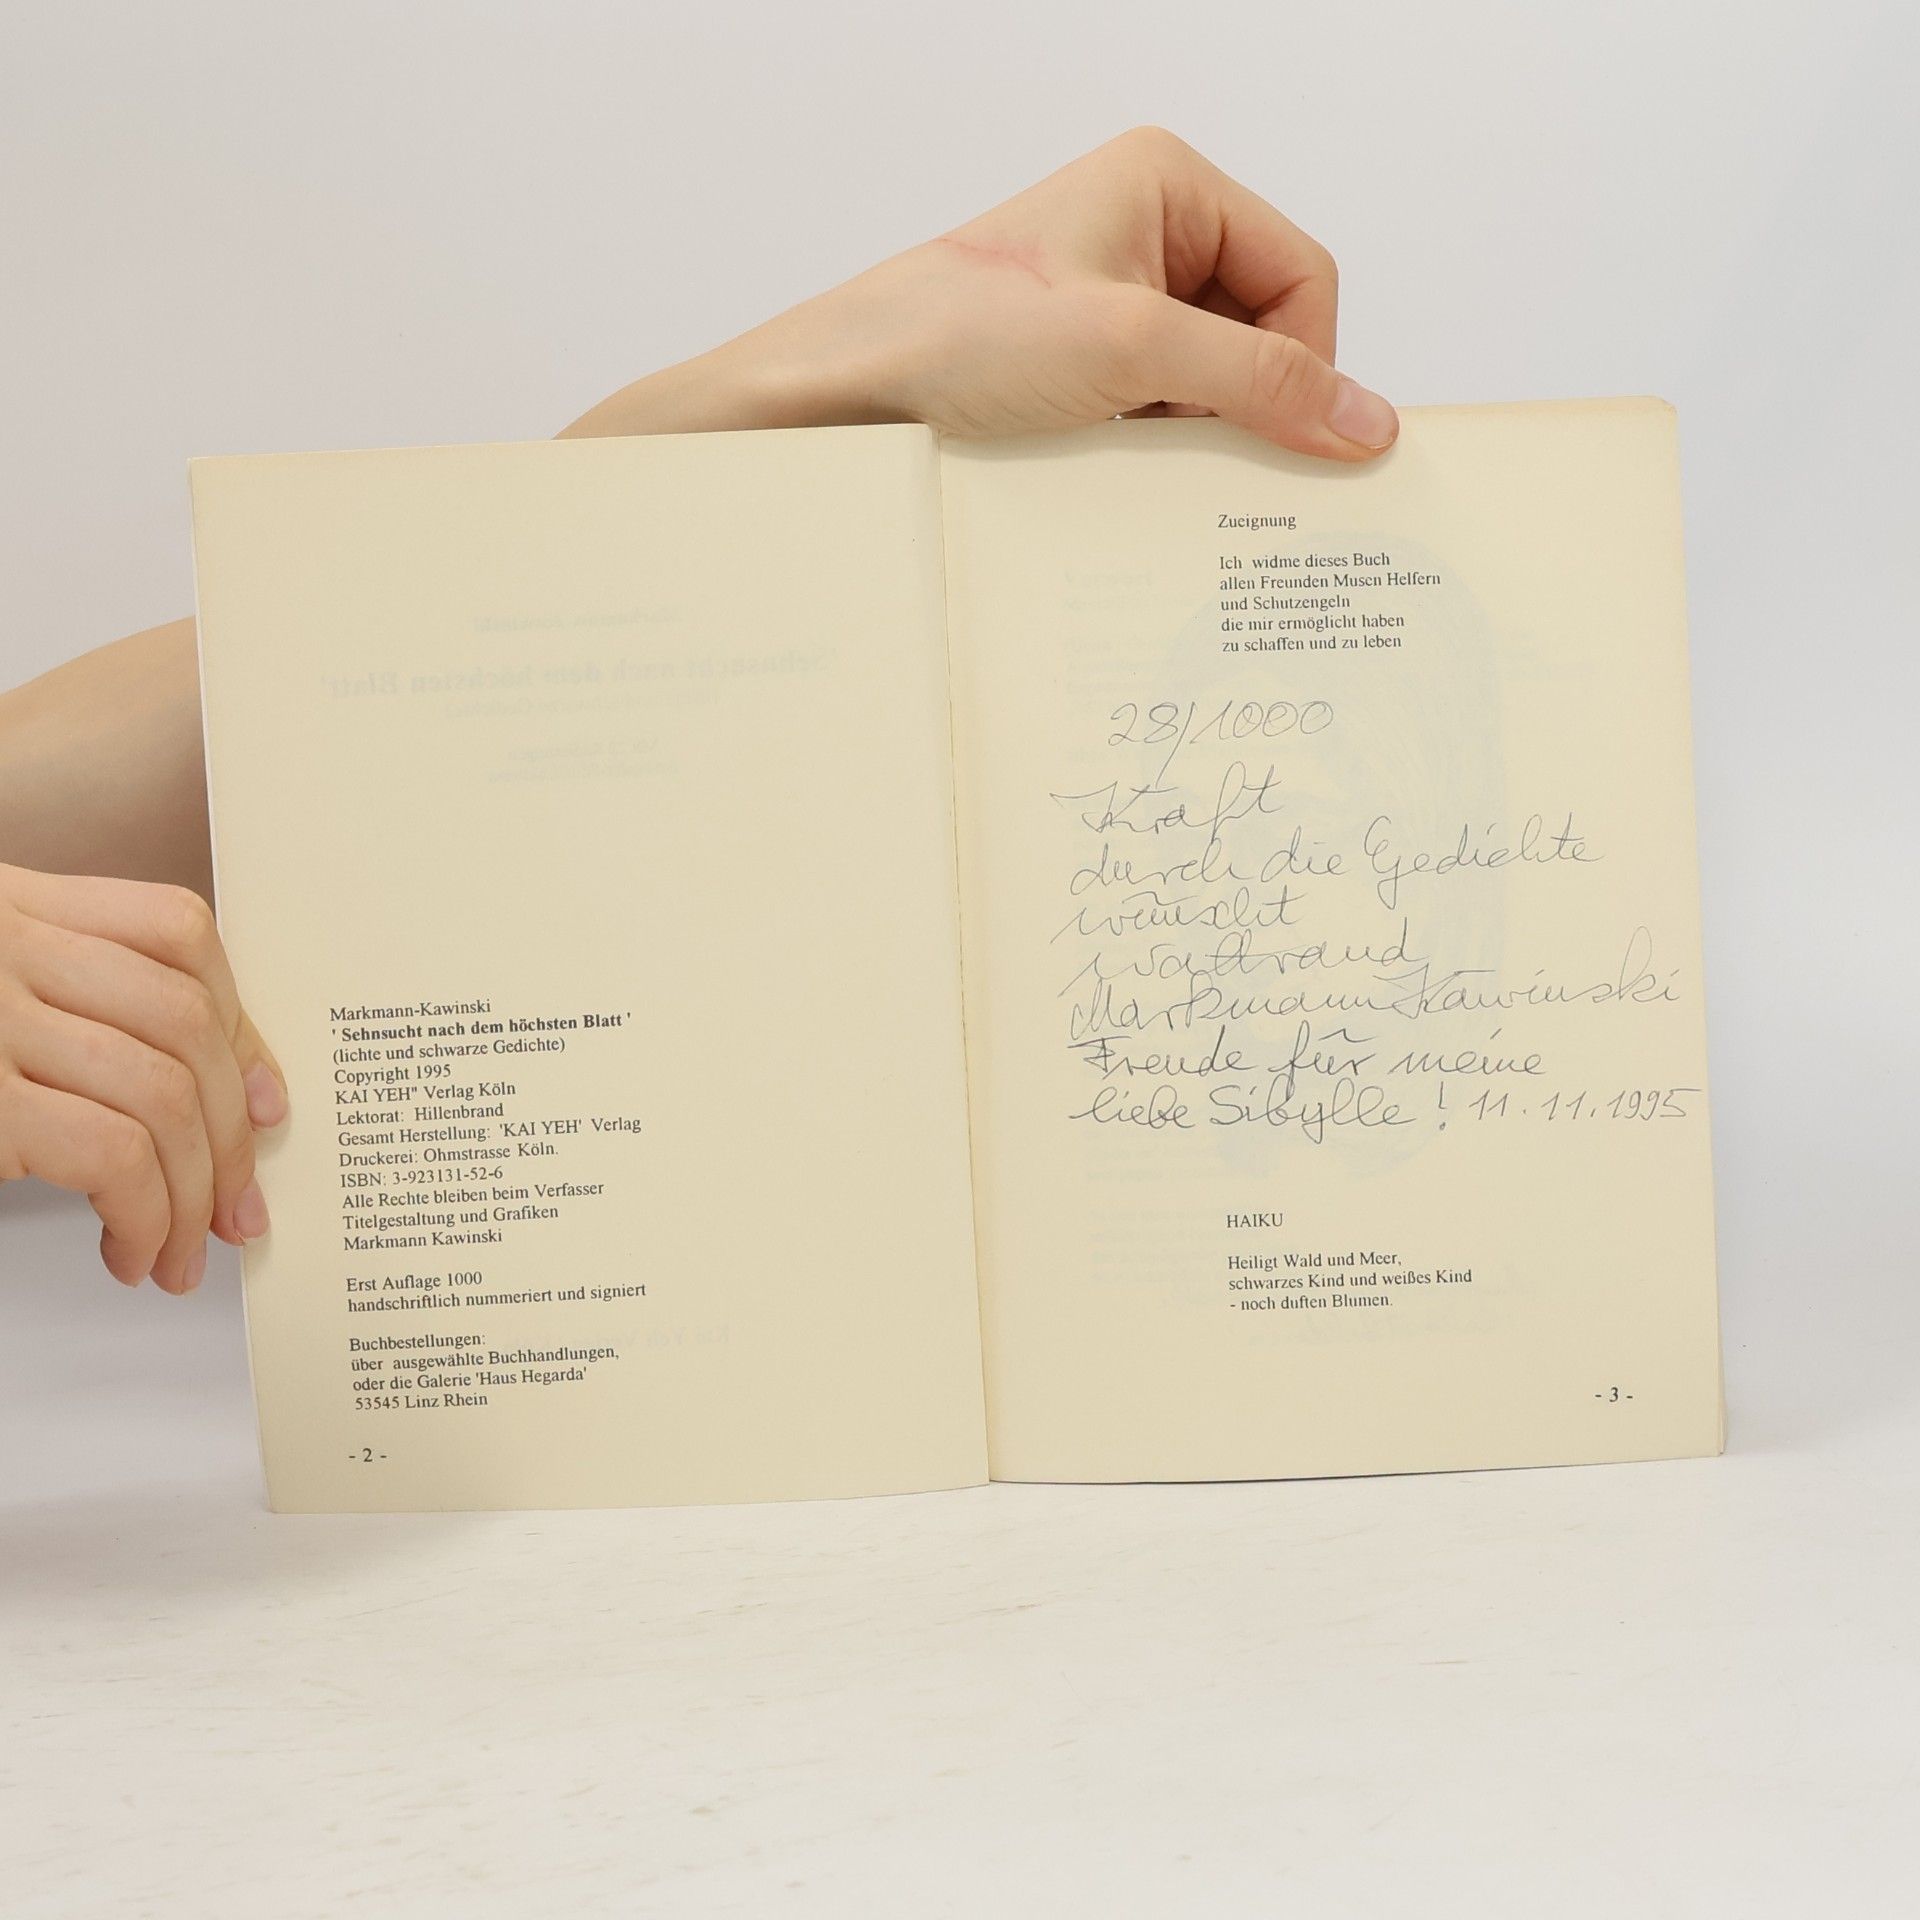 Markmann-Kawinski
' Sehnsucht nach dem höchsten Blatt '
(lichte und schwarze Gedichte)
Copyright 1995
KAI YEH" Verlag Köln
Lektorat: Hillenbrand
Gesamt Herstellung: 'KAI YEH' Verlag
Druckerei: Ohmstrasse Köln.
ISBN: 3-923131-52-6
Alle Rechte bleiben beim Verfasser
Titelgestaltung und Grafiken
Markmann Kawinski
Erst Auflage 1000
handschriftlich nummeriert und signiert
Buchbestellungen:
über ausgewählte Buchhandlungen,
oder die Galerie 'Haus Hegarda'
53545 Linz Rhein
- 2 -
Zueignung
Ich widme dieses Buch
allen Freunden Musen Helfern
und Schutzengeln
die mir ermöglicht haben
zu schaffen und zu leben
28/1000
Kraft
durch die Gedichte
wünscht
Waltraud
Markmann Kawinski
Freude für meine
liebe Sibylle! 11.11.1995
HAIKU
Heiligt Wald und Meer,
schwarzes Kind und weißes Kind
- noch duften Blumen.
- 3 -